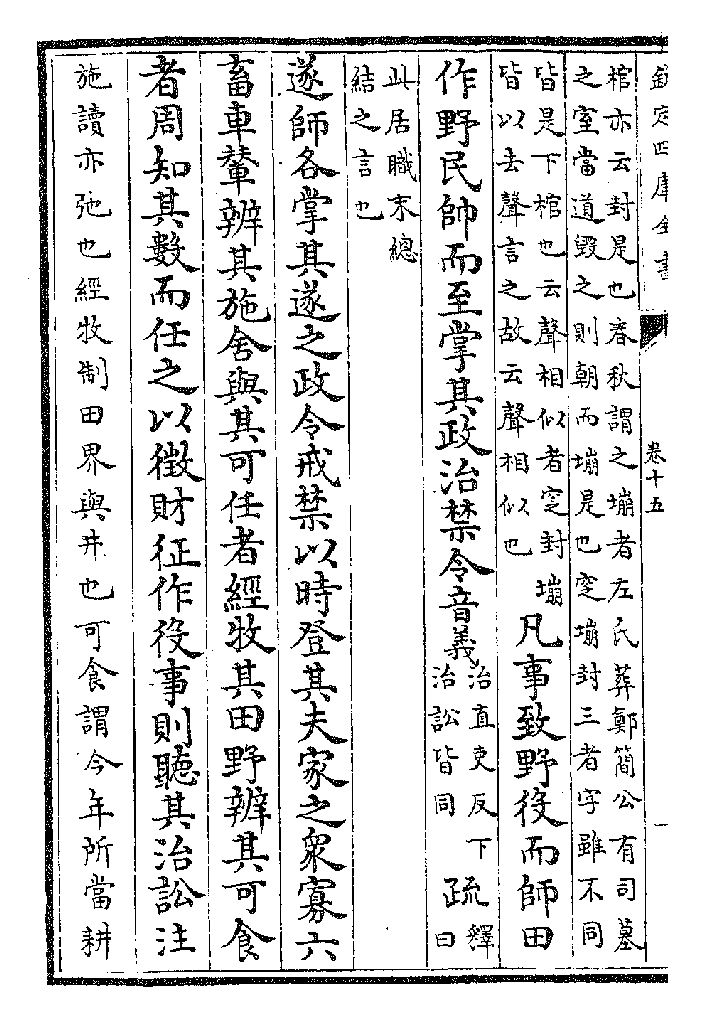 欽定四庫全書
卷十五
棺亦云封是也春秋謂之塴者左氏葬鄭簡公有司墓
之室當道毀之則朝而塴是也窆塴封三者字雖不同
皆是下棺也云聲相似者窆封塴
皆以去聲言之故云聲相似也
凡事致野役而師田
作野民帥而至掌其政治禁令音義
治直吏反下
治訟皆同
疏
釋
曰
此居職末總
結之言也
遂師各掌其遂之政令戒禁以時登其夫家之衆寡六
畜車輦辨其施舍與其可任者經牧其田野辨其可食
者周知其數而任之以徵財征作役事則聽其治訟注
施讀亦弛也經牧制田界與井也可食謂今年所當耕